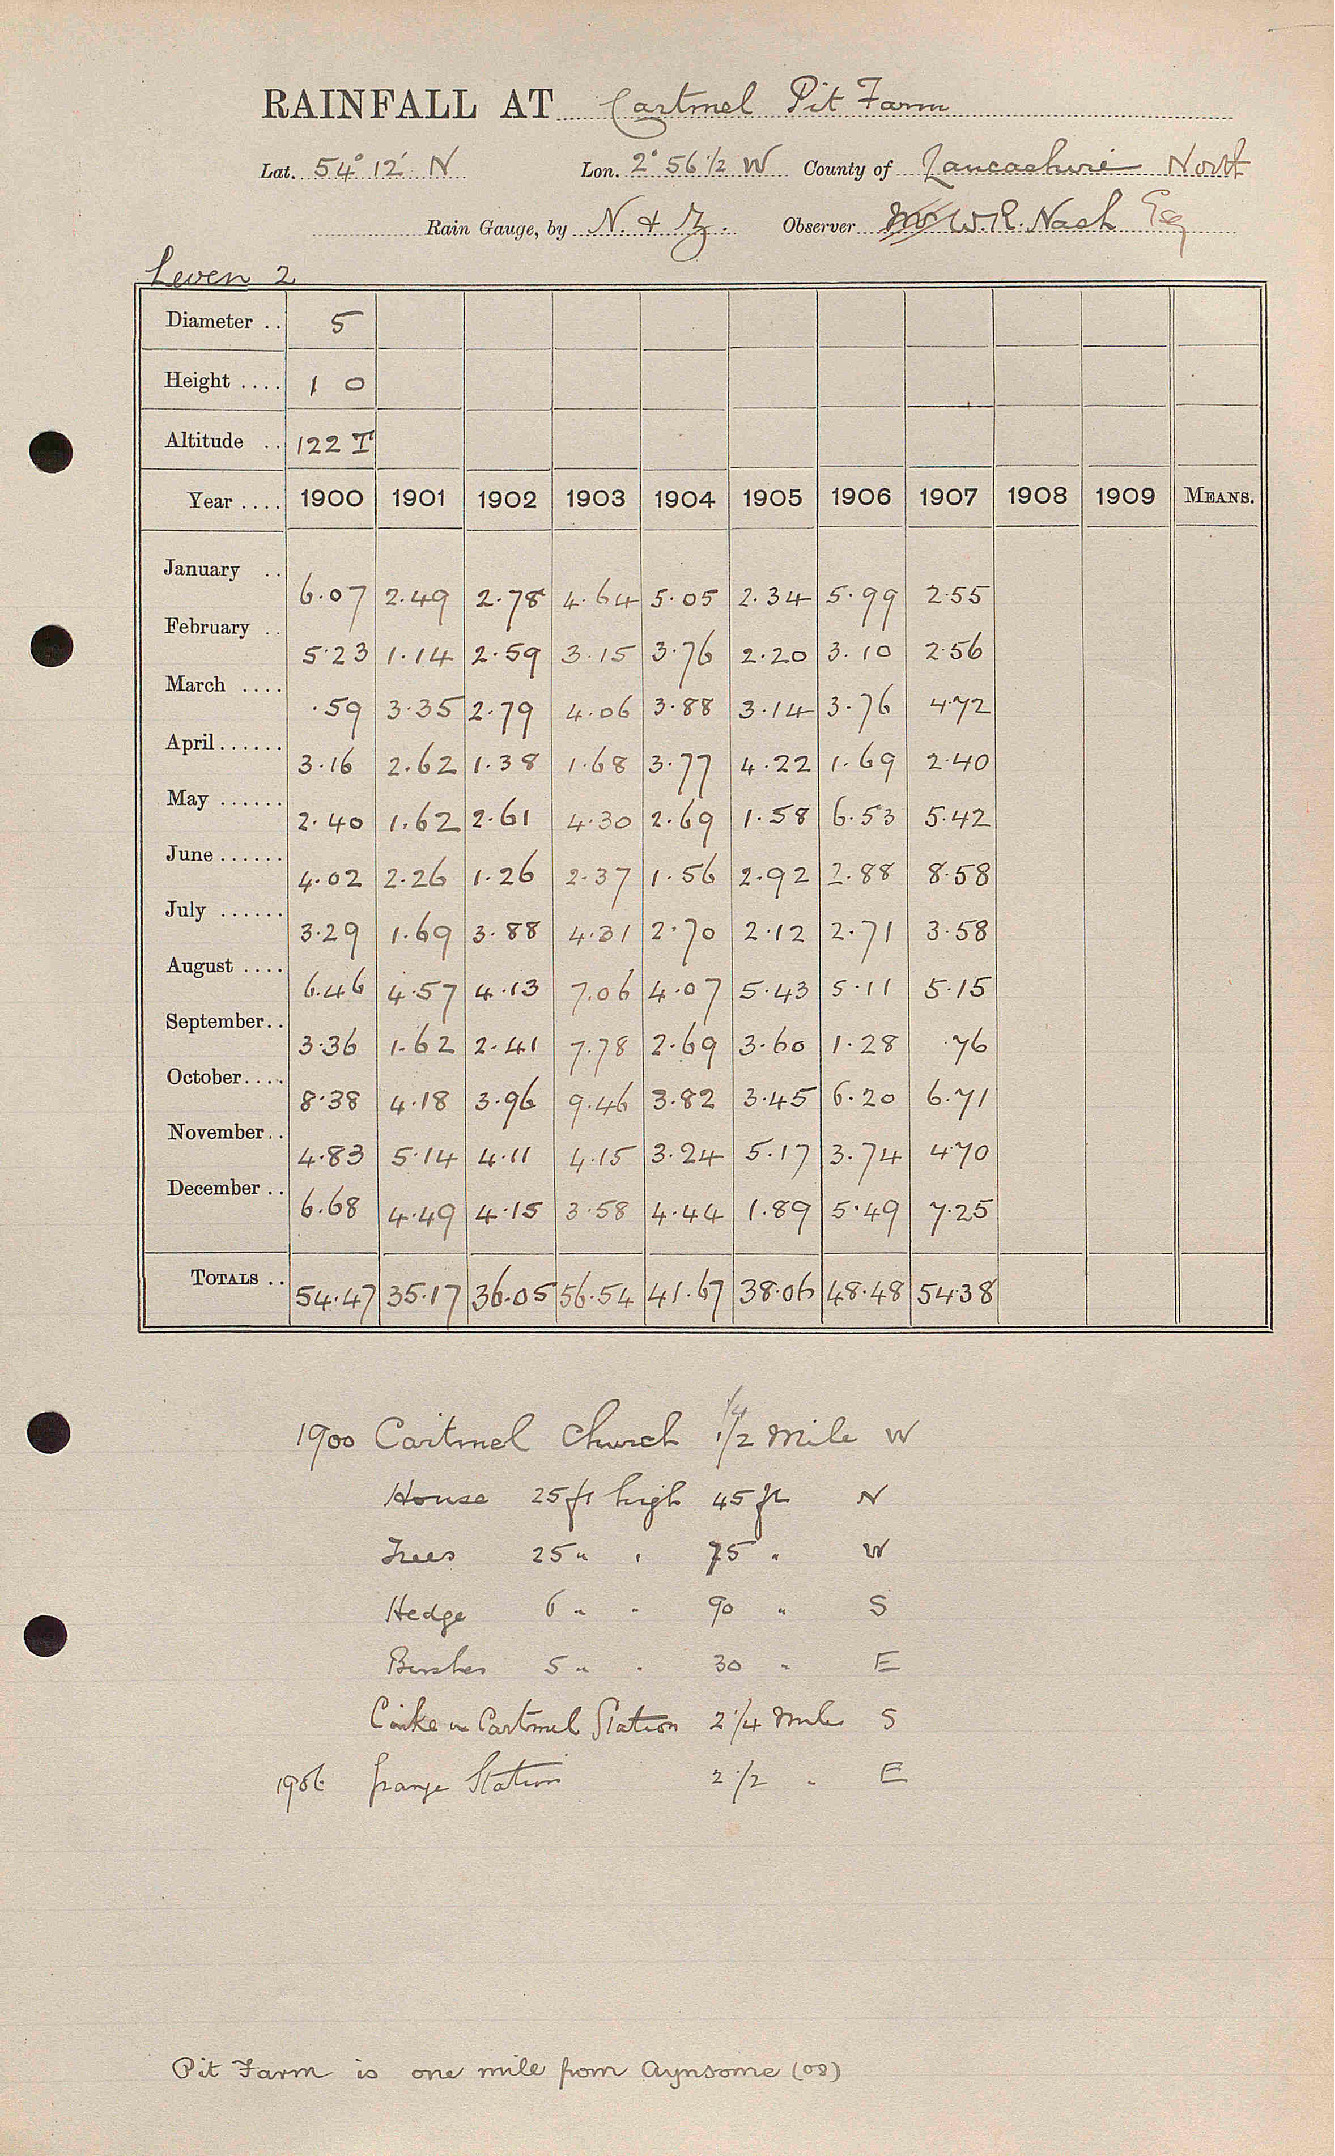 RAINFALL AT Cartmel Pit Farm
Lat. 54° 12' N Lon. 2° 56 1/2 W County of Lancashire North
Rain Gauge, by N. & Z. Observer Mr W.R. Nash Esq
Leven 2
Diameter .. 5
Height .... 1 0
Altitude .. 122 T
Year .... 1900 1901 1902 1903 1904 1905 1906 1907 1908 1909 MEANS.
January .. 6.07 2.49 2.78 4.64 5.05 2.34 5.99 2.55
February .. 5.23 1.14 2.59 3.15 3.76 2.20 3.10 2.56
March .... .59 3.35 2.79 4.06 3.88 3.14 3.76 4.72
April ...... 3.16 2.62 1.38 1.68 3.77 4.22 1.69 2.40
May ...... 2.40 1.62 2.61 4.30 2.69 1.58 6.53 5.42
June ...... 4.02 2.26 1.26 2.37 1.56 2.92 2.88 8.58
July ...... 3.29 1.69 3.88 4.31 2.70 2.12 2.71 3.58
August .... 6.46 4.57 4.13 7.06 4.07 5.43 5.11 5.15
September .. 3.36 1.62 2.41 7.78 2.69 3.60 1.28 .76
October .... 8.38 4.18 3.96 9.46 3.82 3.45 6.20 6.71
November .. 4.83 5.14 4.11 4.15 3.24 5.17 3.74 4.70
December .. 6.68 4.49 4.15 3.58 4.44 1.89 5.49 7.25
TOTALS .. 54.47 35.17 36.05 56.54 41.67 38.06 48.48 54.38
1/4
1900 Cartmel Church 1/2 Mile W
House 25 ft high 45 ft N
Trees 25 " " 75 " W
Hedge 6 " " 90 " S
Bushes 5 " " 30 " E
Carke in Cartmel Station 2 1/4 Miles S
1906 Grange Station 2 1/2 " E
Pit Farm is one mile from Aynsome (08)